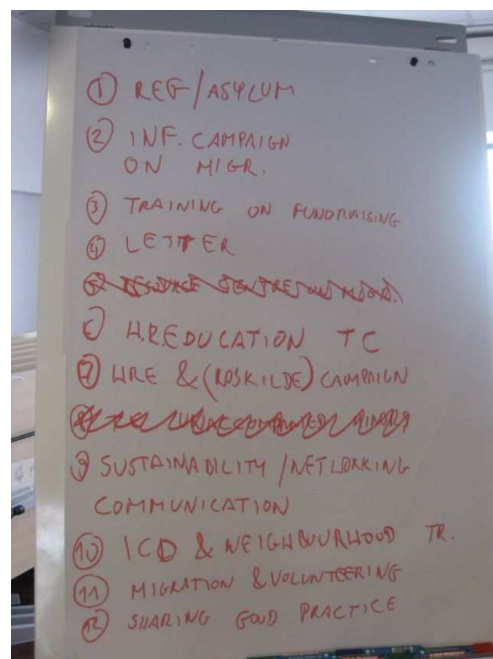 ① REF/ASYLUM
② INF. CAMPAIGN
ON MIGR.
③ TRAINING ON FUNDRAISING
④ LETTER
⑤ RESOURCE CENTRE
6 H.R.EDUCATION TC
⑦ HRE & (ROSKILDE) CAMPAIGN
⑧ UNACCOMPANIED MINORS
9 SUSTAINABILITY / NETWORKING
COMMUNICATION
⑩ ICD & NEIGHBOURHOOD TR.
⑪ MIGRATION & VOLUNTEERING
⑫ SHARING GOOD PRACTICE